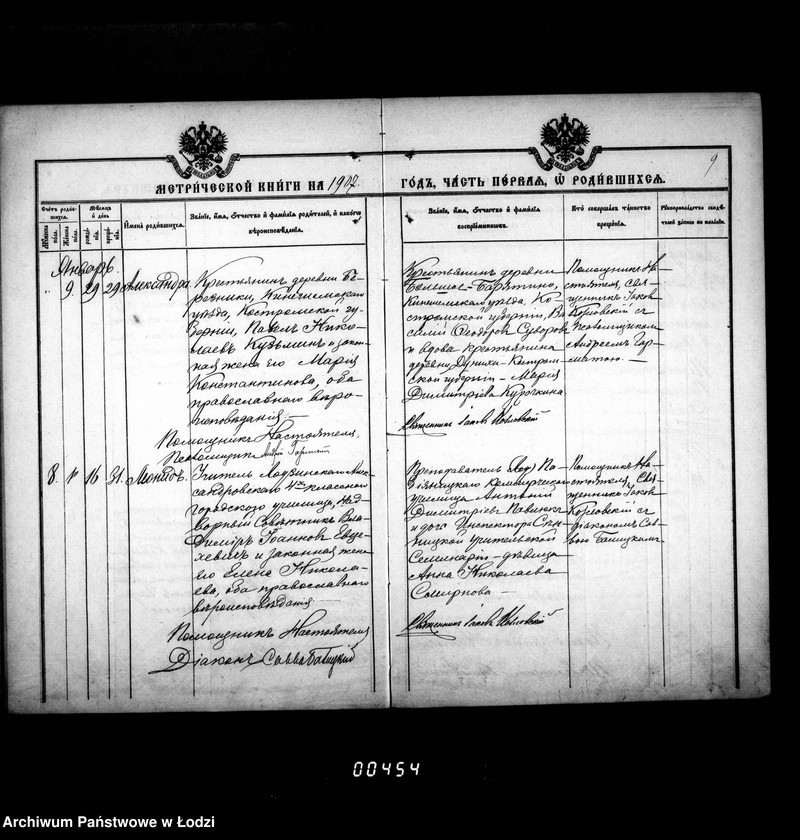 МЕТРИ́ЧЕСКОЙ КНИ́ГИ НА 1907.
ГО́ДЪ, ЧА́СТЬ ПЕ́РВАЯ, Ѡ РОДИ́ВШИХСѦ.
9
Счётъ роди́в-
шихся.
Мѣсяцъ
и день
Имена родившихся.
Званіе, имя, отчество и фамилія родителей, и какого
вѣроисповѣданія.
Званіе, имя, отчество и фамилія
воспріемниковъ.
Кто совершалъ таинство
крещенія.
Рукоприкладство свидѣ-
телей записи по желанію.
Январь.
" 9. 29 29
Александра
Крестьянинъ деревни Бе-
резники, Кинешемскаго
уѣзда, Костромской гу-
берніи, Павелъ Нико-
лаевъ Кузьминъ и закон-
ная жена его Марія
Константинова, оба
православнаго вѣро-
исповѣданія.
Помощникъ Настоятеля,
Псаломщикъ
Крестьянинъ деревни
Большое-
Кинешемскаго уѣзда, Ко-
стромской губерніи, Ва-
силій Ѳеодоровъ Суворовъ
и вдова крестьянина
деревни Костром-
ской губерніи - Марія
Димитріева Курочкина
Священникъ Іаковъ
Помощникъ На-
стоятеля, свя-
щенникъ Іаковъ
съ
псаломщикомъ
Андреемъ
8. " 16 31.
Леонидъ.
Учитель Лодзинскаго Алек-
сандровскаго 4хъ класснаго
городскаго училища, Над-
ворный Совѣтникъ Вла-
диміръ Іоанновъ
и законная жена
его Елена Никола-
ева, оба православнаго
вѣроисповѣданія
Помощникъ Настоятеля
Діаконъ Савва
Преподаватель Лод. Па-
біяницкаго Коммерческаго
училища Антоній
Димитріевъ
и дочь Инспектора
учительской
Семинаріи - дѣвица
Анна Николаева
Смирнова
Священникъ Іаковъ
Помощникъ На-
стоятеля, Свя-
щенникъ Іаковъ
съ
діакономъ Сав-
вою
00454
Archiwum Państwowe w Łodzi